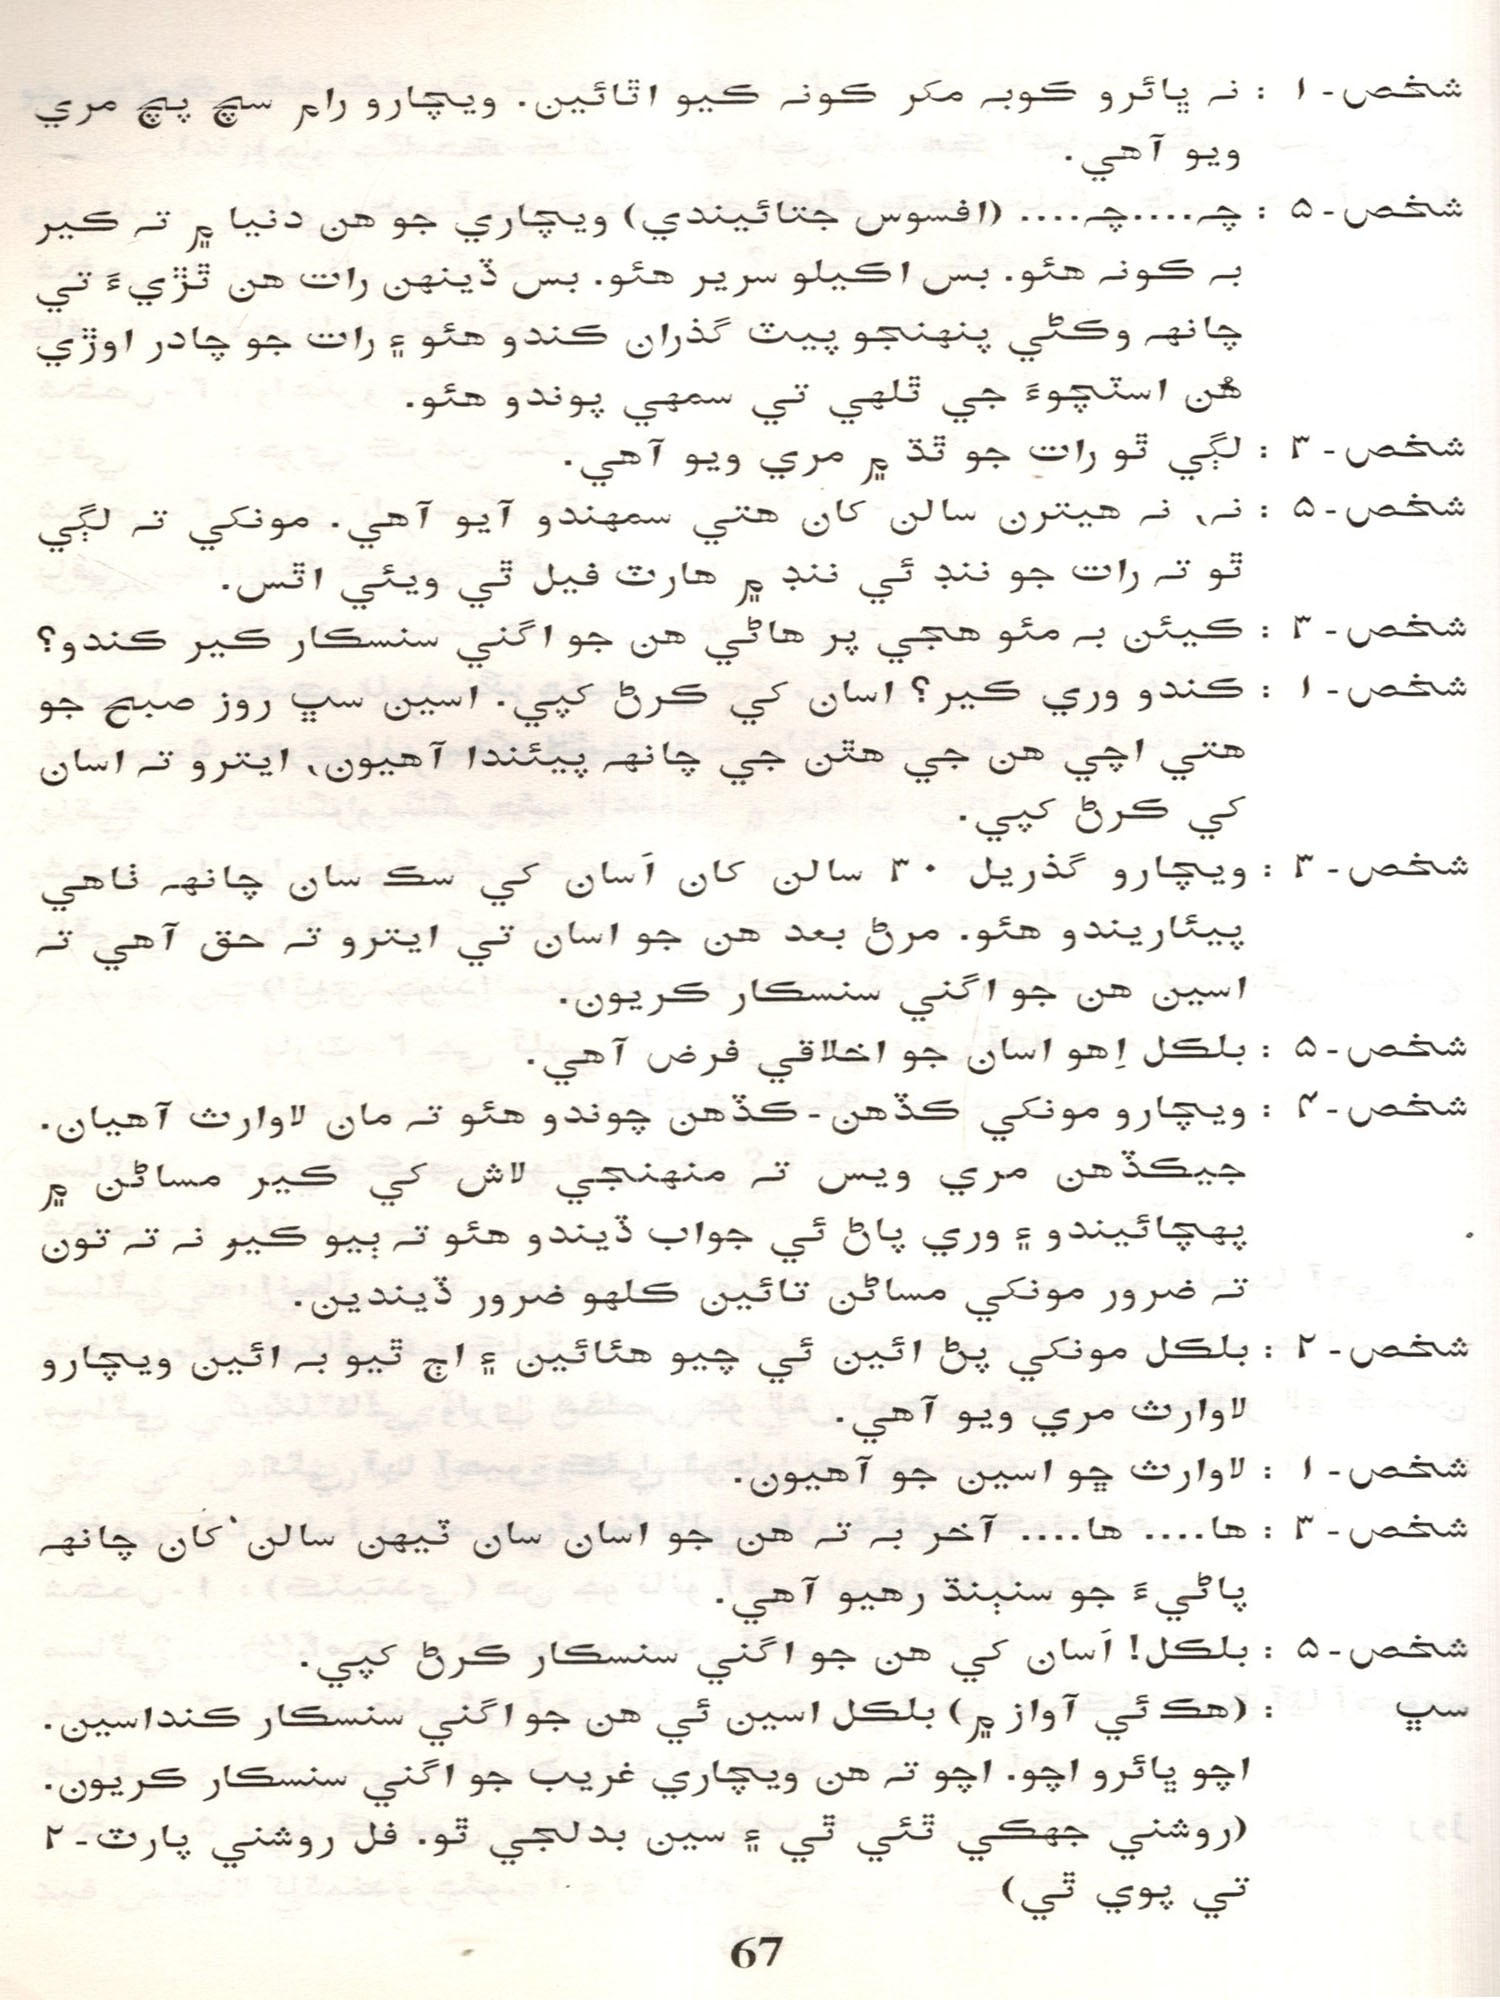 شخص- ۱ : نہ ڀائرو ڪوبہ مڪر ڪونہ ڪيو اٿائين. ويچارو رام سچ پچ مري
ويو آهي.
شخص- ۵ : چہ....چہ.... (افسوس جتائيندي) ويچاري جو هن دنيا ۾ تہ ڪير
بہ ڪونہ هئو. بس اڪيلو سرير هئو. بس ڏينهن رات هن ٿڙيءَ تي
چانهہ وڪڻي پنهنجو پيٽ گذران ڪندو هئو ۽ رات جو چادر اوڙي
هُن اسٽچوءَ جي ٿلهي تي سمهي پوندو هئو.
شخص- ۳ : لڳي ٿو رات جو ٿڌ ۾ مري ويو آهي.
شخص- ۵ : نہ، نہ هيترن سالن کان هتي سمهندو آيو آهي. مونکي تہ لڳي
ٿو تہ رات جو ننڊ ئي ننڊ ۾ هارٽ فيل ٿي ويئي اٿس.
شخص- ۳ : ڪيئن بہ مئو هجي پر هاڻي هن جو اگني سنسڪار ڪير ڪندو؟
شخص- ۱ : ڪندو وري ڪير؟ اسان کي ڪرڻ کپي. اسين سڀ روز صبح جو
هتي اچي هن جي هٿن جي چانهہ پيئندا آهيون، ايترو تہ اسان
کي ڪرڻ کپي.
شخص- ۳ : ويچارو گذريل ۳۰ سالن کان اَسان کي سڪ سان چانهہ ٺاهي
پيئاريندو هئو. مرڻ بعد هن جو اسان تي ايترو تہ حق آهي تہ
اسين هن جو اگني سنسڪار ڪريون.
شخص- ۵ : بلڪل اِهو اسان جو اخلاقي فرض آهي.
شخص- ۴ : ويچارو مونکي ڪڏهن-ڪڏهن چوندو هئو تہ مان لاوارث آهيان.
جيڪڏهن مري ويس تہ منهنجي لاش کي ڪير مساڻن ۾
پهچائيندو ۽ وري پاڻ ئي جواب ڏيندو هئو تہ ٻيو ڪير نہ تہ تون
تہ ضرور مونکي مساڻن تائين ڪلهو ضرور ڏيندين.
شخص- ۲ : بلڪل مونکي پڻ ائين ئي چيو هئائين ۽ اڄ ٿيو بہ ائين ويچارو
لاوارث مري ويو آهي.
شخص- ۱ : لاوارث ڇو اسين جو آهيون.
شخص- ۳ : ها.... ها.... آخر بہ تہ هن جو اسان سان ٽيهن سالن کان چانهہ
پاڻيءَ جو سنٻنڌ رهيو آهي.
شخص- ۵ : بلڪل! اَسان کي هن جو اگني سنسڪار ڪرڻ کپي.
سڀ : (هڪ ئي آواز ۾) بلڪل اسين ئي هن جو اگني سنسڪار ڪنداسين.
اچو ڀائرو اچو. اچو تہ هن ويچاري غريب جو اگني سنسڪار ڪريون.
(روشني جهڪي ٿئي ٿي ۽ سين بدلجي ٿو. فل روشني پارٽ- ۲
تي پوي ٿي)
67